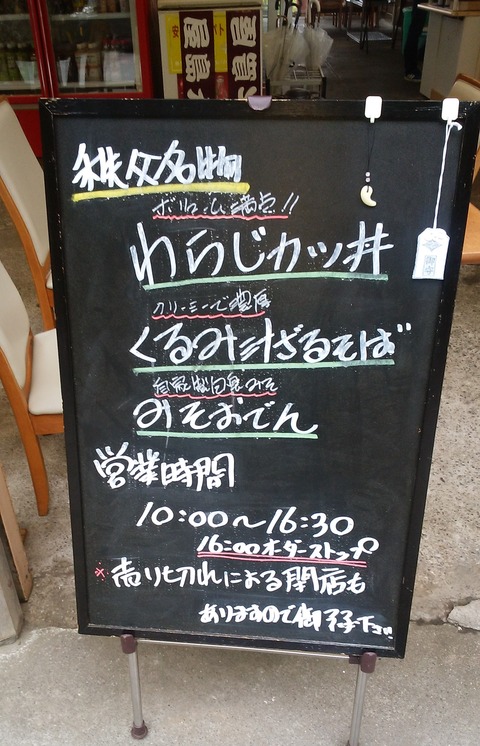 秩父名物
ボリューム満点!!
わらじカツ丼
クリーミーで濃厚
くるみ汁ざるそば
自家製田舎みそ
みそおでん
営業時間
10:00〜16:30
16:00オーダーストップ
※売り切れによる閉店も
ありますので御了承下さい